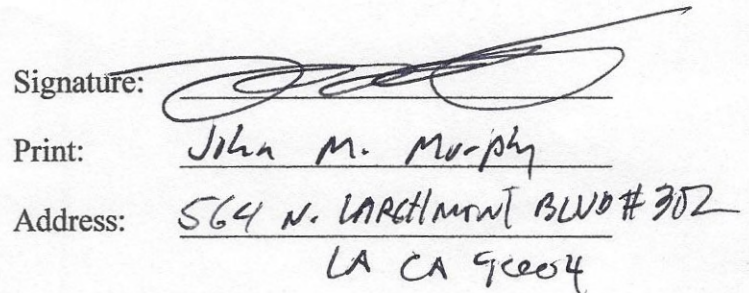 Signature:
Print: John M. Murphy
Address: 564 N. LARCHMONT BLVD # 302
LA CA 90004